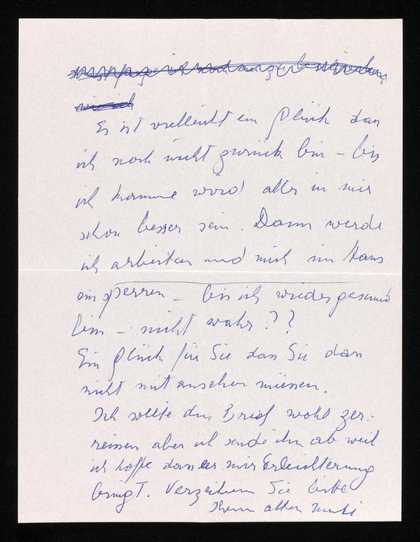 Es ist vielleicht ein Glück dan
ich noch nicht zurück bin – bis
ich komme wird alles in mir
schon besser sein. Dann werde
ich arbeiten und mich im Haus
einsperren – bis ich wieder gesund
bin – nicht wahr??
Ein Glück für Sie das Sie dan
nicht mit ansehen müssen.
Ich sollte den Brief wohl zer-
reissen aber ich sende ihn ab weil
ich hoffe dan er mir Erleichterung
bringt. Verzeihen Sie bitte